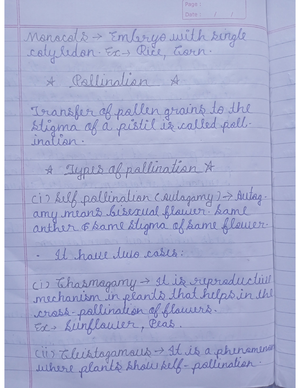 Page :
Date : / /
Monocots → Embryo with single
cotyledon. Ex → Rice, Corn.
☆ Pollination ☆
Transfer of pollen grains to the
stigma of a pistil is called poll-
ination.
☆ Types of pollination ☆
(i) Self pollination (autogamy) → Autog-
amy means bisexual flower. Same
anther & same stigma of same flower.
• It have two cases:
(i) Chasmogamy → It is reproductive
mechanism in plants that helps in the
cross-pollination of flowers.
Ex → Sunflower, Peas.
(ii) Cleistogamous → It is a phenomenon
where plants show self-pollination.